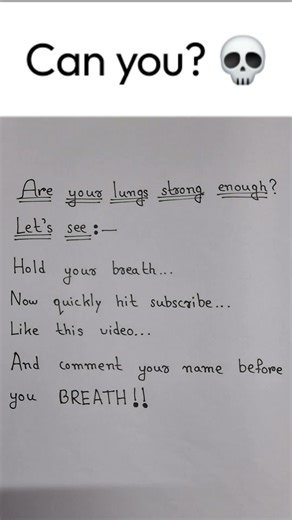 Can you? 💀
Are your lungs strong enough?
Let's see:—
Hold your breath...
Now quickly hit subscribe...
Like this video...
And comment your name before
you BREATH!!